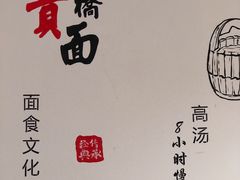 貢
橋面
面食文化
传承
经典
高汤
8小时慢